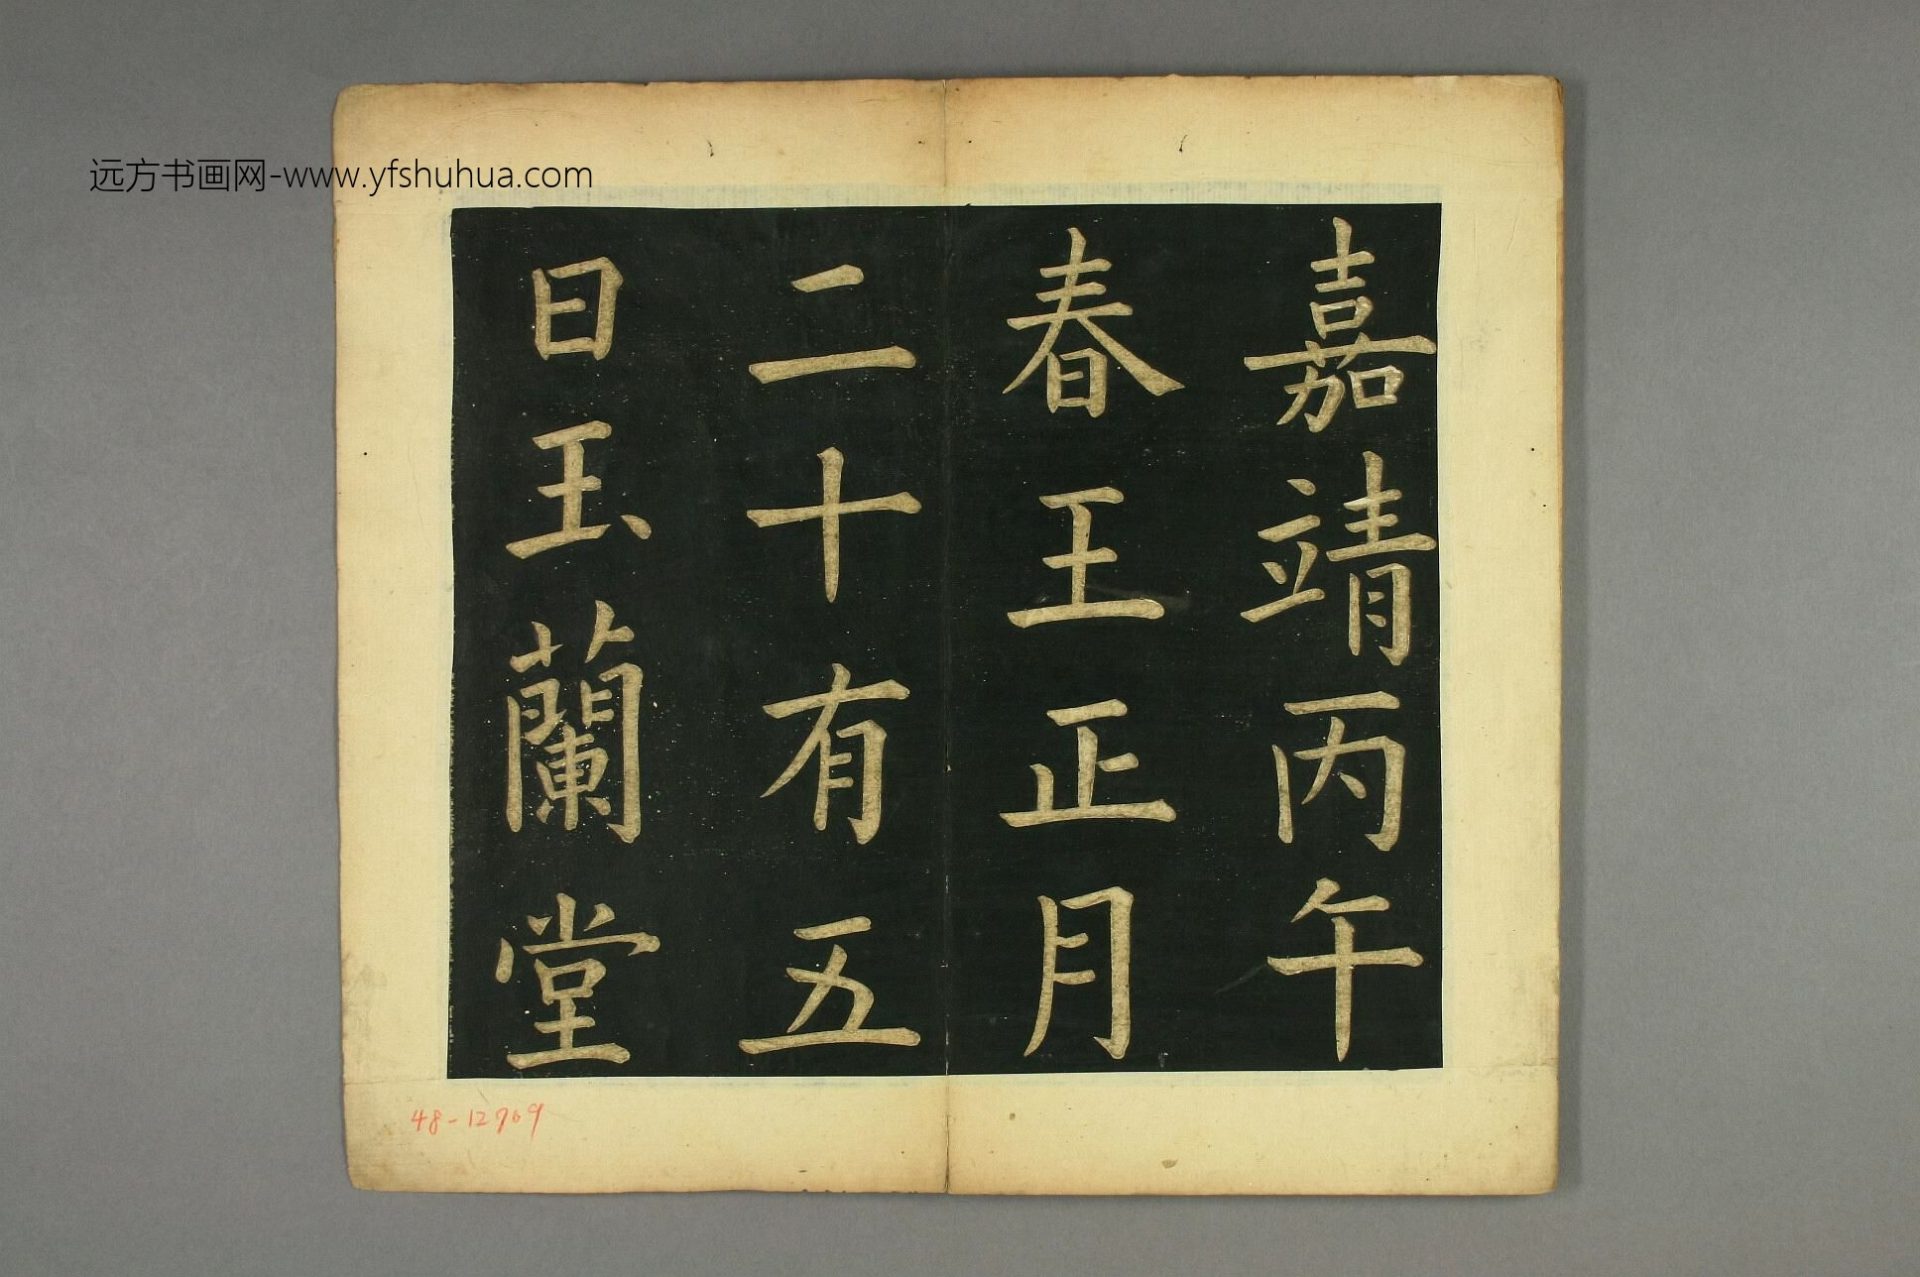 远方书画网-www.yfshuhua.com
嘉靖丙午
春王正月
二十有五
日玉蘭堂
48-12709